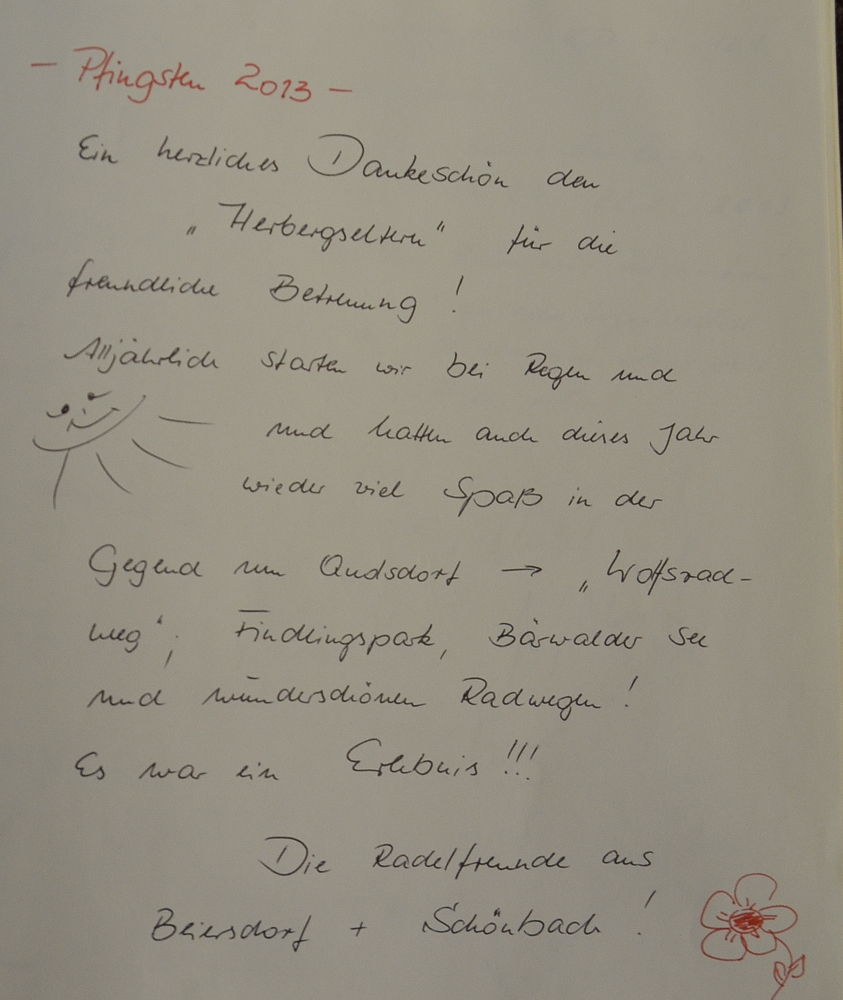 - Pfingsten 2013 -
Ein herzliches Dankeschön den
„Herbergseltern“ für die
freundliche Betreuung!
Alljährlich starten wir bei Regen und
und hatten auch dieses Jahr
wieder viel Spaß in der
Gegend um → „Wolfsrad-
weg“; Findlingspark, Bärwalder See
und wunderschönen Radwegen!
Es war ein Erlebnis!!!
Die Radelfreunde aus
Beiersdorf + Schönbach!